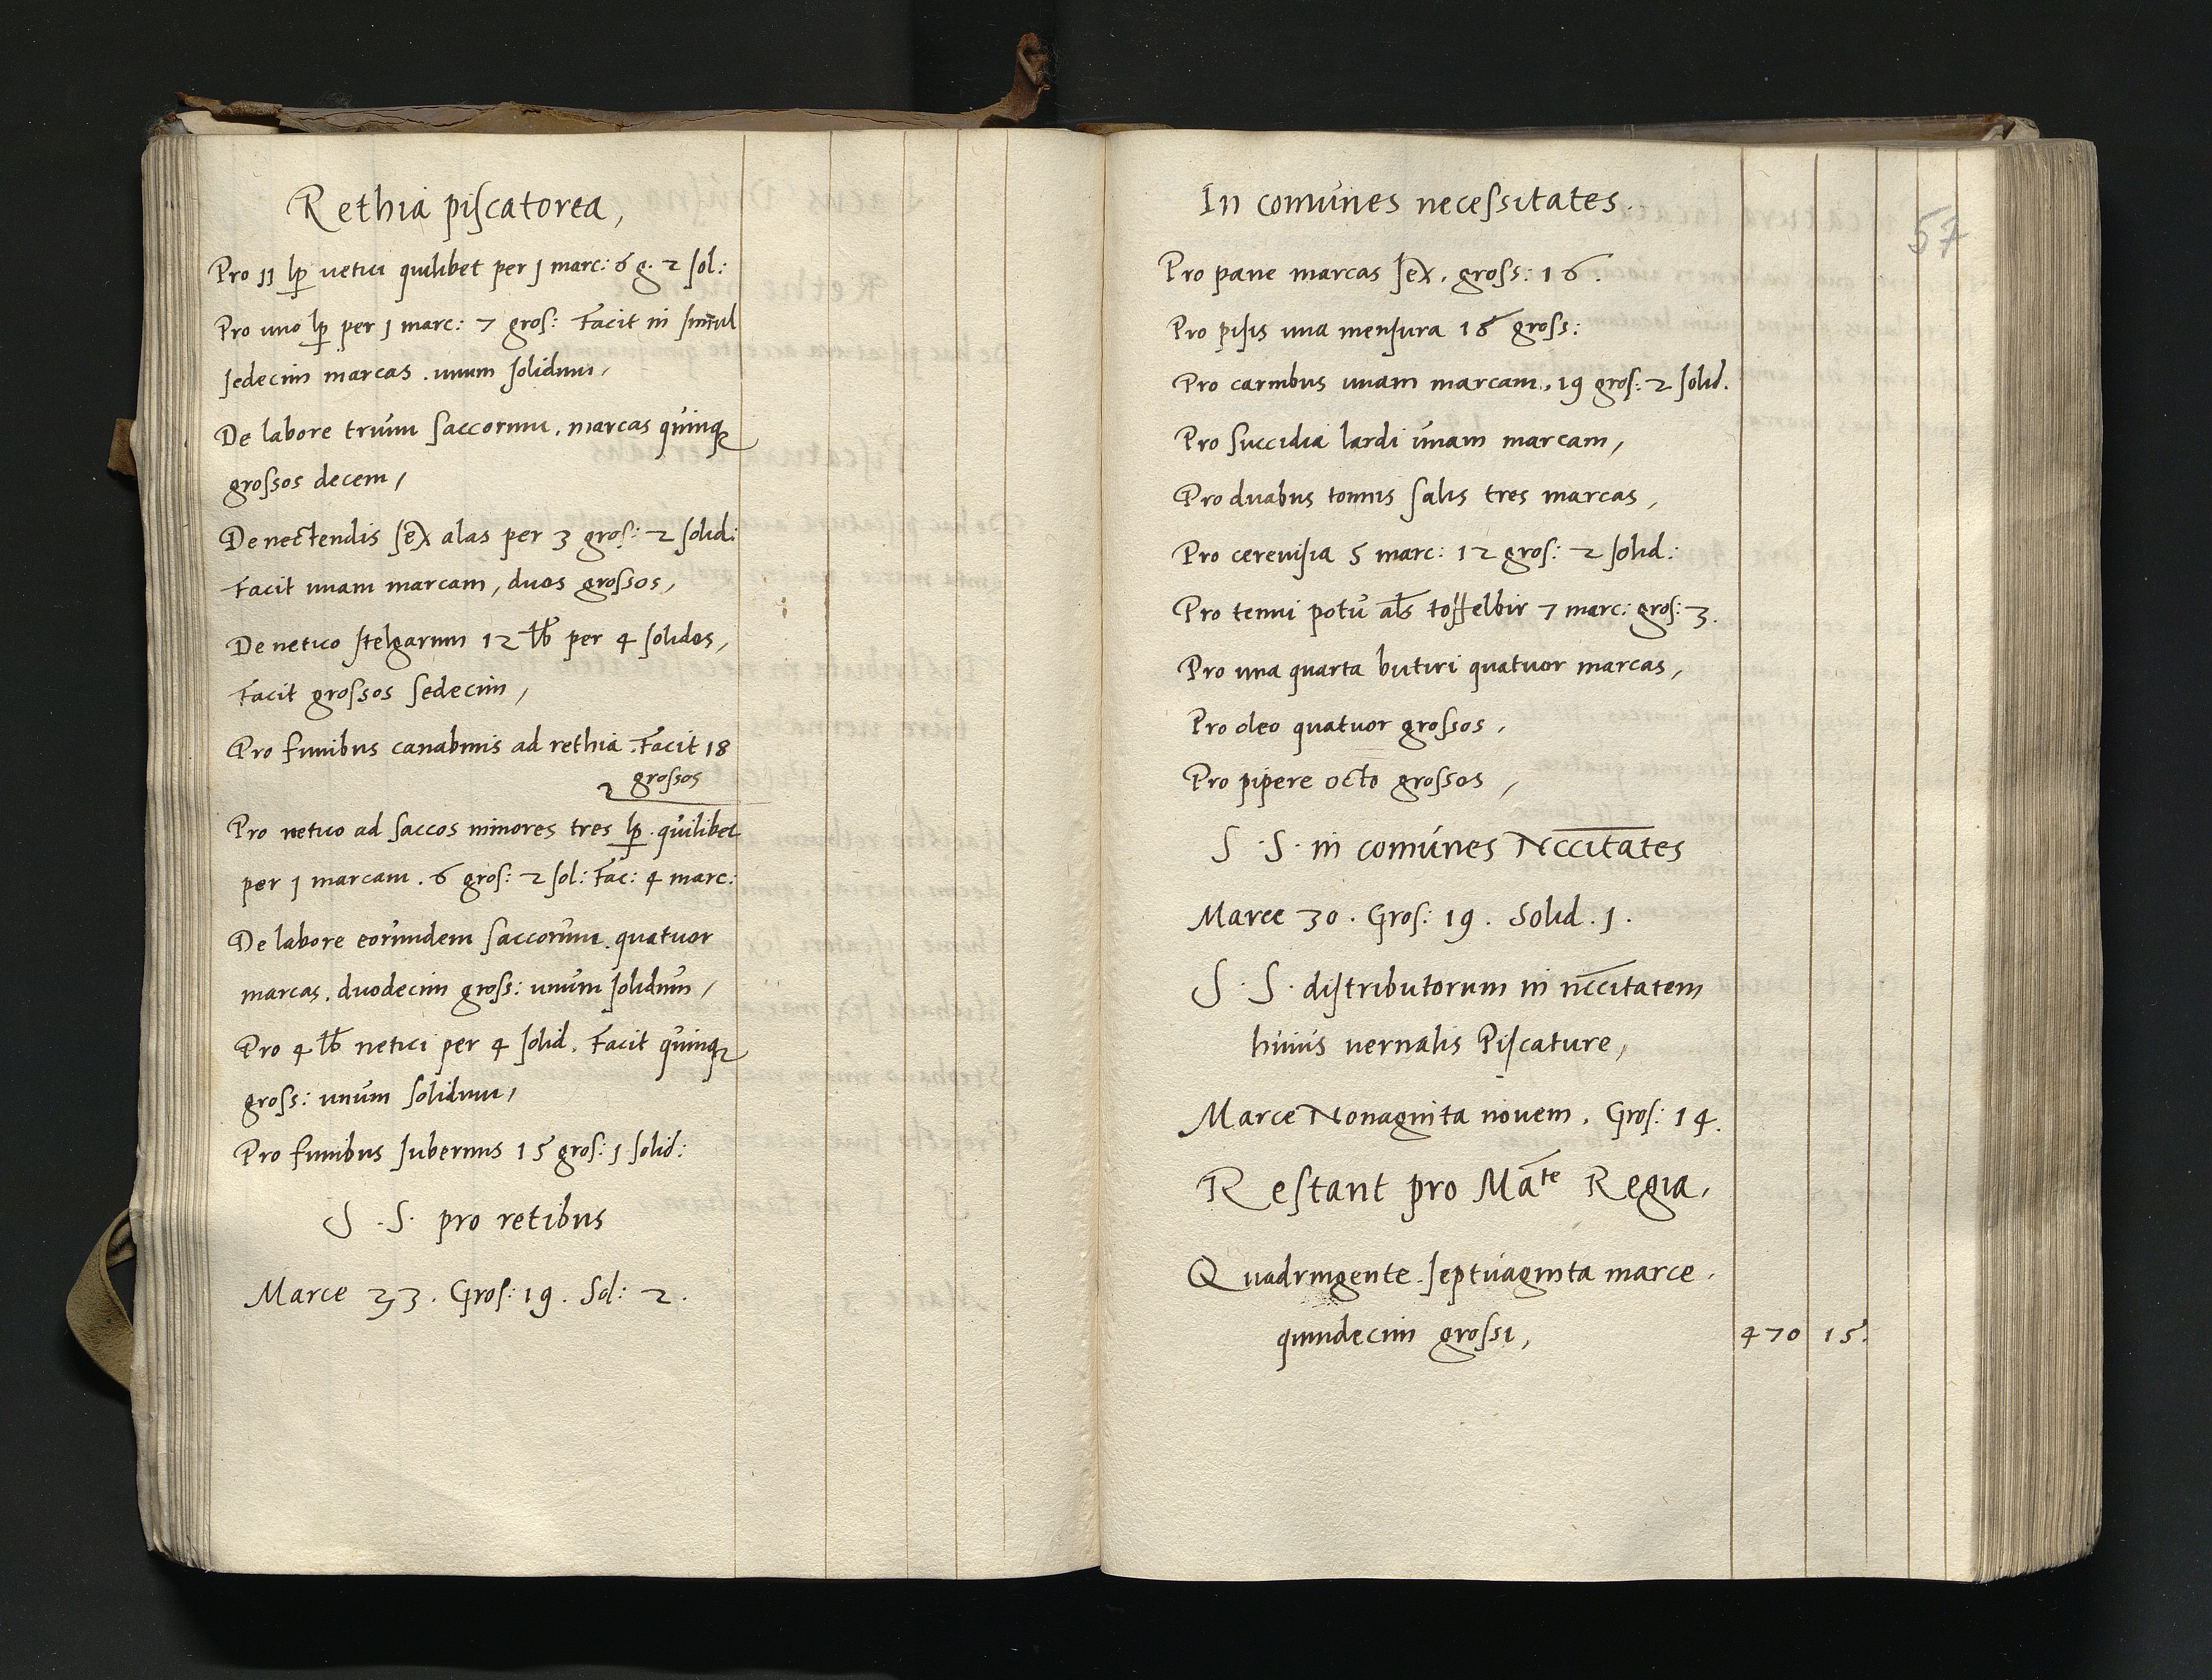 Rethia piscatorea,
Pro 11 lp netici quilibet per 1 marc: 6 g. 2 sol:
Pro uno lp per 1 marc: 7 gros: Facit in simul
sedecim marcas . unum solidum,
De labore trium saccorum, marcas quinq
grossos decem,
De nectendis sex alas per 3 gros: 2 solid:
Facit unam marcam, duos grossos,
De netico stelgarum 12 lb per 4 solidos,
Facit grossos sedecim,
Pro funibus canabinis ad rethia . Facit 18
grossos
Pro netico ad saccos minores tres lp . quilibet
per 1 marcam . 6 gros: 2 sol: Fac: 4 marc:
De labore eorundem saccorum . quatuor
marcas . duodecim gross: unum solidum,
Pro 4 lb netici per 4 solid . Facit quinq
gross: unum solidum,
Pro funibus suberinis 15 gros: 1 solid:
S . S . pro retibus
Marce 33 . Gros: 19 . Sol: 2 .
57
In comunes necessitates .
Pro pane marcas sex . gross: 16 .
Pro pisis una mensura 18 gross:
Pro carnibus unam marcam . 19 gros: 2 solid .
Pro succidia lardi unam marcam,
Pro duabus tonnis salis tres marcas,
Pro cerevisia 5 marc: 12 gros: 2 solid:
Pro tenui potu als toffelbir 7 marc: gros: 3 .
Pro una quarta butiri quatuor marcas,
Pro oleo quatuor grossos,
Pro pipere octo grossos,
S . S . in comunes Nccitates
Marce 30 . Gros: 19 . Solid . 1 .
S . S . distributorum in nccitatem
huius vernalis Piscature,
Marce Nonaginta novem . Gros: 14 .
Restant pro Mate Regia,
Quadringente . septuaginta marce .
quindecim grossi, 470 15 .